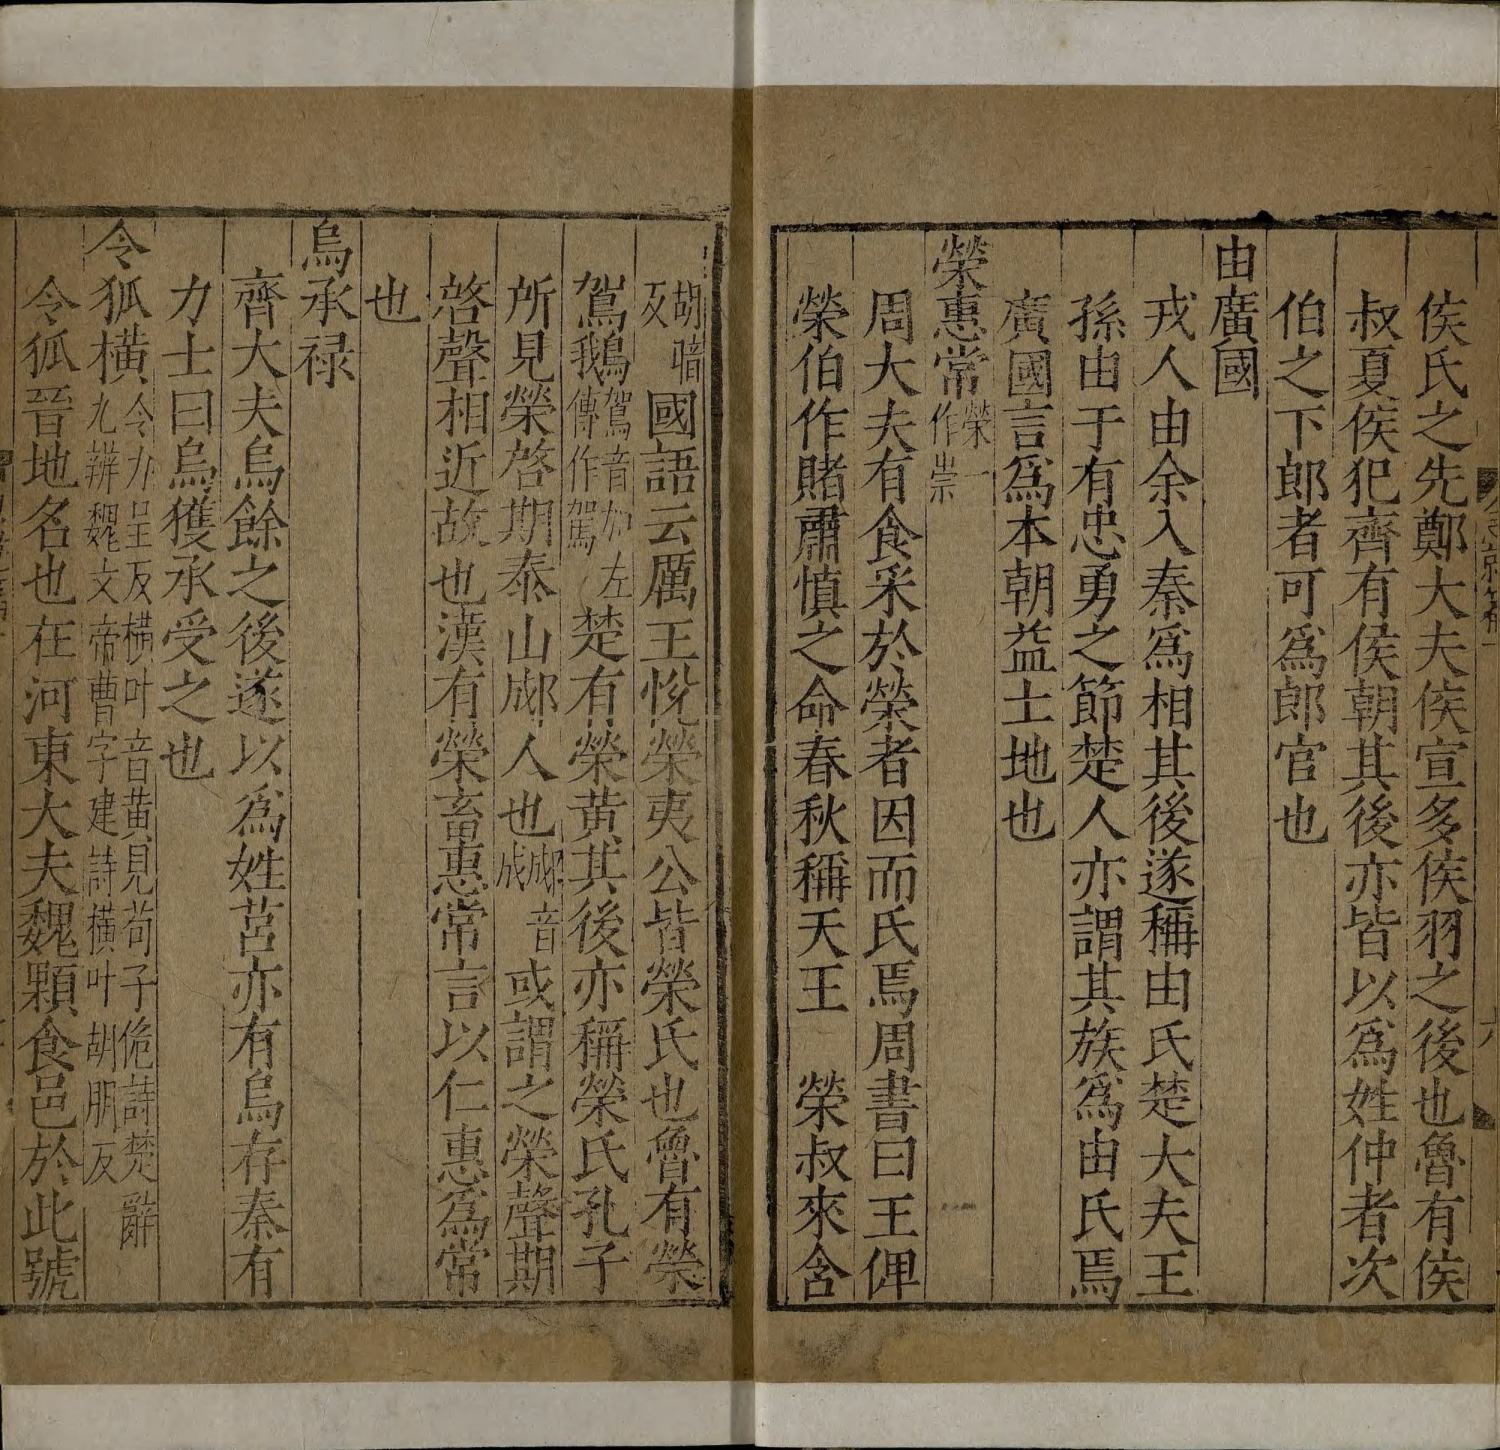 侯氏之先鄭大夫侯宣多侯羽之後也魯有侯
叔夏侯犯齊有侯朝其後亦皆以爲姓仲者次
伯之下郎者可爲郎官也
由廣國
戎人由余入秦爲相其後遂稱由氏楚大夫王
孫由于有忠勇之節楚人亦謂其族爲由氏焉
廣國言爲本朝益土地也
榮惠常榮一作崇
周大夫有食采於榮者因而氏焉周書曰王俾
榮伯作賄肅慎之命春秋稱天王 榮叔來含
胡暗反國語云厲王悅榮夷公皆榮氏也魯有榮
鴐鵝鴐音加左傳作駕楚有榮黃其後亦稱榮氏孔子
所見榮啓期泰山郕人也郕音成或謂之榮聲期
啓聲相近故也漢有榮畜惠常言以仁惠爲常
也
烏承禄
齊大夫烏餘之後遂以爲姓莒亦有烏存秦有
力士曰烏獲承受之也
令狐橫令力呈反橫叶音黃見荀子佹詩楚辭九辨魏文帝曹字建詩橫叶胡朋反
令狐晉地名也在河東大夫魏顆食邑於此號